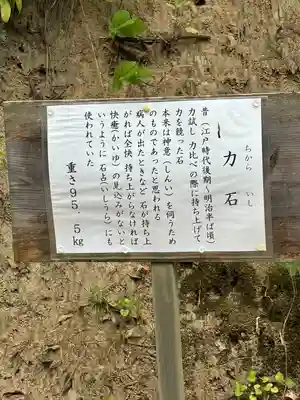 ちから いし
力 石
昔（江戸時代後期～明治半ば頃）
力試し 力比べの際に持ち上げて
力を競った石
本来は神意（しんい）を伺うため
のものであったと思われる
病人が出たときなど 石が持ち上
がれば全快 持ち上がらなければ
快癒（かいゆ）の見込みがないと
いうように 石占（いしうら）にも
使われていた
重さ９５．５kg